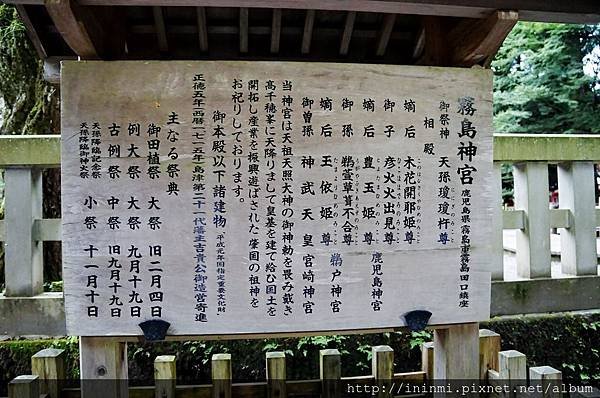 霧島神宮 鹿児島県霧島市霧島田口鎮座
御祭神 天孫瓊瓊杵尊
相殿
嫡后 木花開耶姫尊
御子 彦火火出見尊 鹿児島神宮
嫡后 豊玉姫尊
御孫 鵜萱草葺不合尊 鵜戸神宮
嫡后 玉依姫尊
御曽孫 神武天皇 宮崎神宮
当神宮は天祖天照大神の御神勅を畏み戴き
高千穂峯に天降りまして皇基を建て給ひ国土を
開拓し産業を振興遊ばされた肇国の祖神を
お祀りしております。
御本殿以下諸建物 「平成元年国指定重要文化財」
正徳五年西暦(一七一五年)島津二十一代藩主吉貴公御造営寄進
主なる祭典
御田植祭 大祭 旧二月四日
例大祭 大祭 九月十九日
古例祭 中祭 旧九月十九日
天孫降臨記念祭
天孫降臨御神火祭 小祭 十一月十日
http://ininmi.pixnet.net/album